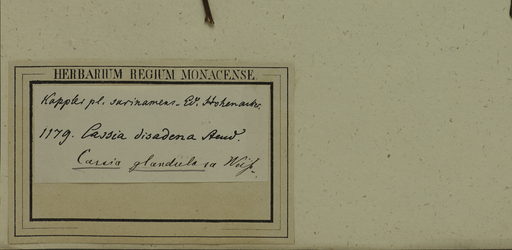 HERBARIUM REGIUM MONACENSE
Kappler pl. surinamens. Ed. Hohenack.
1179. Cassia disadena Steud.
Cassia glandulosa